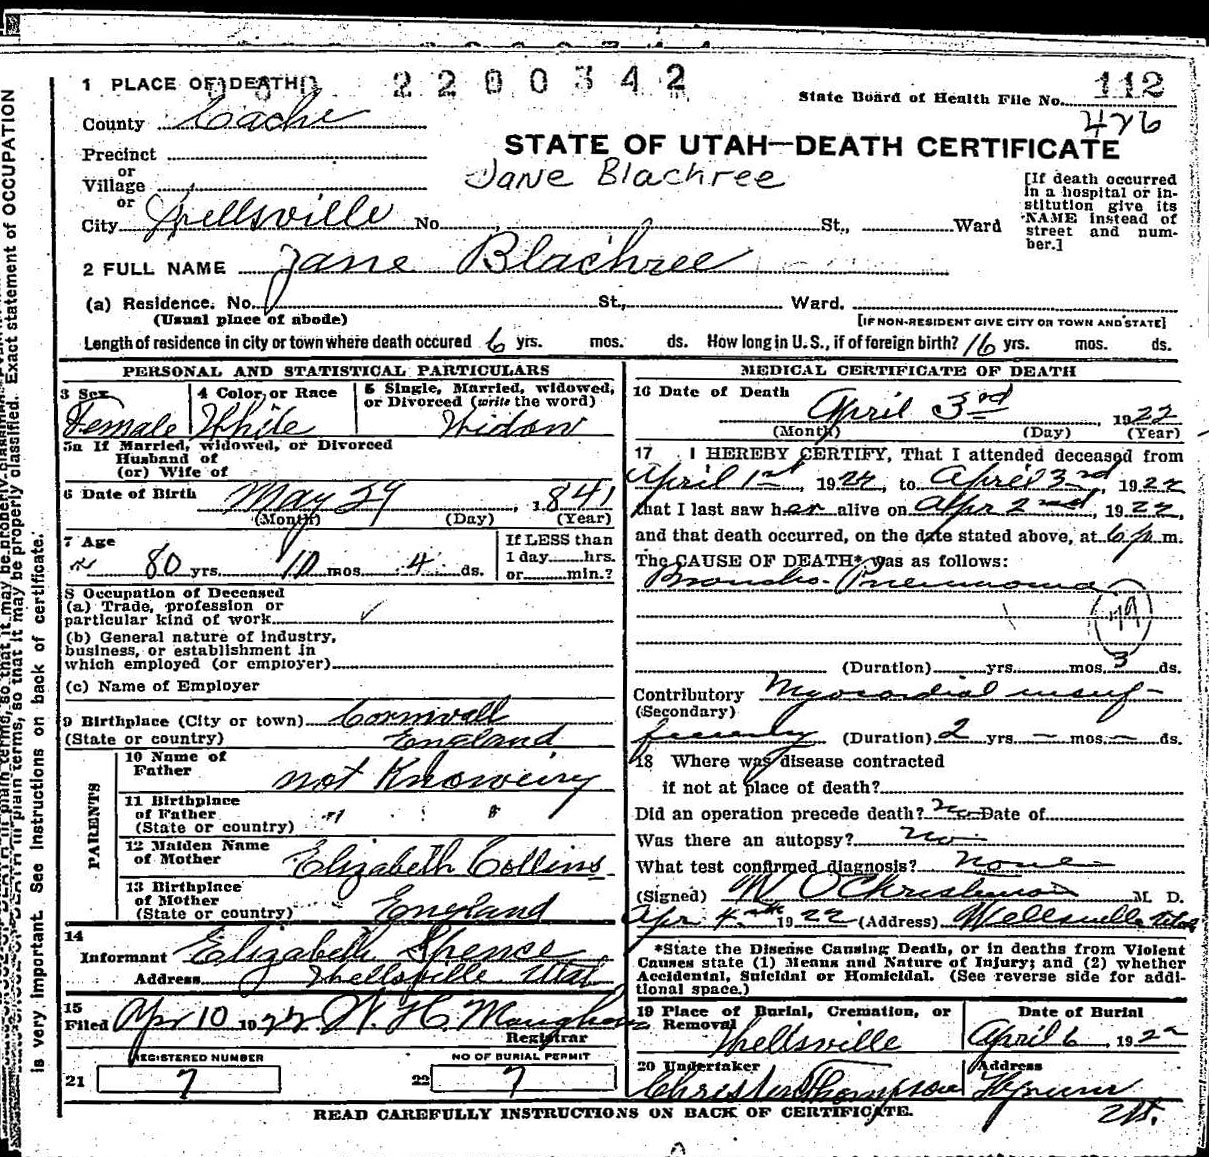 1 PLACE OF DEATH
2200342
State Board of Health File No. 112
426
County Cache
STATE OF UTAH—DEATH CERTIFICATE
Precinct
or
Village
or
Jane Blachree
City Wellsville No. St., Ward
[If death occurred
in a hospital or in-
stitution give its
NAME instead of
street and num-
ber.]
2 FULL NAME Jane Blachree
(a) Residence. No. St., Ward.
(Usual place of abode)
[IF NON-RESIDENT GIVE CITY OR TOWN AND STATE]
Length of residence in city or town where death occured 6 yrs. mos. ds. How long in U.S., if of foreign birth? 16 yrs. mos. ds.
PERSONAL AND STATISTICAL PARTICULARS
3 Sex
Female
4 Color or Race
White
5 Single, Married, widowed,
or Divorced (write the word)
Widow
5a If Married, widowed, or Divorced
Husband of
(or) Wife of
6 Date of Birth
May 29, 1841
(Month) (Day) (Year)
7 Age
80 yrs. 10 mos. 4 ds.
If LESS than
1 day hrs.
or min.?
8 Occupation of Deceased
(a) Trade, profession or
particular kind of work
(b) General nature of industry,
business, or establishment in
which employed (or employer)
(c) Name of Employer
9 Birthplace (City or town) Cornwall
(State or country) England
PARENTS
10 Name of
Father not Knoweing
11 Birthplace
of Father " "
(State or country)
12 Maiden Name
of Mother Elizabeth Collins
13 Birthplace
of Mother
(State or country) England
14
Informant Elizabeth Spence
Address Wellsville Utah
15
Filed Apr 10 1922 W. H. Maughan
Registrar
REGISTERED NUMBER
21 7
NO OF BURIAL PERMIT
22 7
MEDICAL CERTIFICATE OF DEATH
16 Date of Death
April 3rd, 1922
(Month) (Day) (Year)
17 I HEREBY CERTIFY, That I attended deceased from
April 1st, 1922, to April 3rd, 1922
that I last saw her alive on Apr 2nd, 1922,
and that death occurred, on the date stated above, at 6 p.m.
The CAUSE OF DEATH* was as follows:
Broncho-Pneumonia
(Duration) yrs. mos. 3 ds.
Contributory Myocardial insuf-
(Secondary)
ficiency (Duration) 2 yrs. — mos. — ds.
18 Where was disease contracted
if not at place of death?
Did an operation precede death? no Date of
Was there an autopsy? no
What test confirmed diagnosis? none
(Signed) W O Christenson M. D.
Apr 4th 1922 (Address) Wellsville Utah
*State the Disease Causing Death, or in deaths from Violent
Causes state (1) Means and Nature of Injury; and (2) whether
Accidental, Suicidal or Homicidal. (See reverse side for addi-
tional space.)
19 Place of Burial, Cremation, or
Removal
Wellsville
Date of Burial
April 6, 1922
20 Undertaker
Thompson
Address
Hyrum
Ut.
READ CAREFULLY INSTRUCTIONS ON BACK OF CERTIFICATE.
in plain terms, so that it may be properly classified. Exact statement of OCCUPATION
is very important. See instructions on back of certificate.